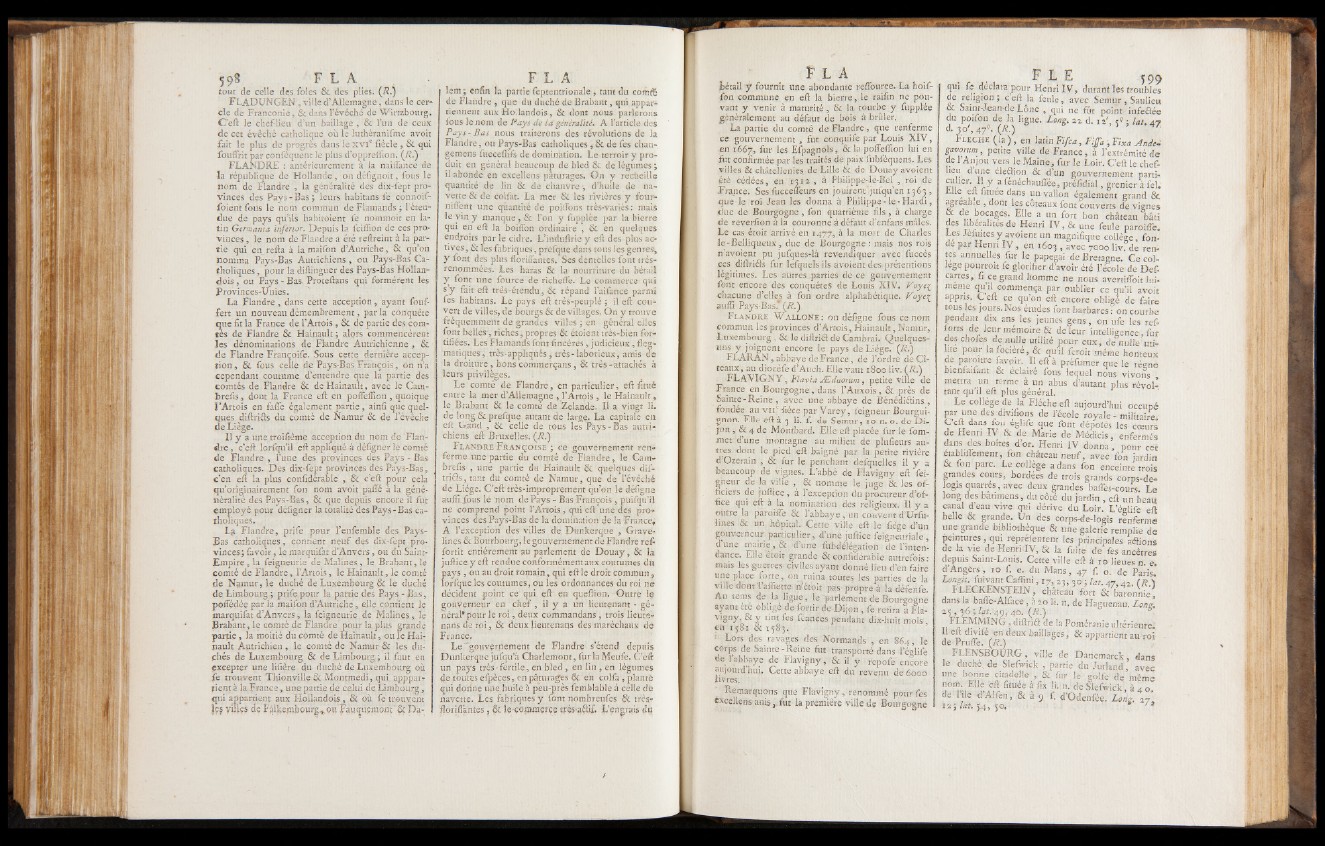 598 F L A
tout de celle des soles & des plies. (R.)
FLADUNGEN, ville d'Allemagne, dans le cer-
cle de Franconie, & dans l'évêché de Wirtzbourg.
C'est le chef-lieu d'un bailliage, & l'un de ceux
de cet évêché catholique où le luthéranisme avoit
fait le plus de progrès dans le XVIe siècle, & qui
souffrit par conséquent le plus d'oppression. (R.)
FLANDRE : antérieurement à la naissance de
la république de Hollande, on désignoit, sous le
nom de Flandre, la généralité des dix-sept pro-
vinces des Pays-Bas; leurs habitans se connois-
soient sous le nom commun de Flamands; l'éten-
due de pays qu'ils habitoient se nommoit en la-
tin Germania inferior. Depuis la scission de ces pro-
vinces, le nom de Flandre a été restreint à la par-
tie qui en resta à la maison d'Autriche, & qu'on
nomma Pays-Bas Autrichiens, ou Pays-Bas Ca-
tholiques, pour la distinguer des Pays-Bas Hollan-
dois, ou Pays-Bas Protestans qui formèrent les
Provinces-Unies.
La Flandre, dans cette acception, ayant souf-
fert un nouveau démembrement, par la conquête
que fit la France de l'Artois, & de partie des com-
tés de Flandre & Hainault; alors commencèrent
les dénominations de Flandre Autrichienne, &
de Flandre Françoise. Sous cette dernière accep-
tion, & sous celle de Pays-Bas François, on n'a
cependant coutume d'entendre que la partie des
comtés de Flandre & de Hainault, avec le Cam-
bresis, dont la France est en possession, quoique
l'Artois en fasse également partie, ainsi que quel-
ques districts du comté de Namur & de l'évêché
de Liége.
Il y a une troisième acception du nom de Flan-
dre, c'est lorsqu'il est appliqué à désigner le comté
de Flandre, l'une des provinces des Pays-Bas
catholiques. Des dix-sept provinces des Pays-Bas,
c'en est la plus considérable, & c'est pour cela
qu'originairement son nom avoit passé à la géné-
néralité des Pays-Bas, & que depuis encore il fut
employé pour désigner la totalité des Pays-Bas ca-
tholiques.
La Flandre, prise pour l'ensemble des Pays-
Bas catholiques, contient neuf des dix-sept pro-
vinces; savoir, le marquisat d'Anvers, ou du Saint-
Empire, la seigneurie de Malines, le Brabant, le
comté de Flandre, l'Artois, le Hainault, le comté
de Namur, le duché de Luxembourg & le duché
de Limbourg; prise pour la partie des Pays-Bas,
possédée par la maison d'Autriche, elle contient le
marquisat d'Anvers, la seigneurie de Malines, le
Brabant, le comté de Flandre pour la plus grande
partie, la moitié du comté de Hainault, ou le Hai-
nault Autrichien, le comté de Namur & les du-
chés de Luxembourg & de Limbourg; il faut en
excepter une lisière du duché de Luxembourg où
se trouvent Thionville & Montmedi, qui appar-
tient à la France, une partie de celui de Limbourg,
qui appartient aux Hollandois, & où se trouvent
les villes de Falkembourg, ou Fauquemont, & Da-
F L A
lem; enfin la partie septentrionale, tant du comté
de Flandre, que du duché de Brabant, qui appar-
tiennent aux Hollandois, & dont nous parlerons
sous le nom de Pays de la généralité. A l'article des
Pays-Bas nous traiterons des révolutions de la
Flandre, ou Pays-Bas catholiques, & de ses chan-
gemens successifs de domination. Le terroir y pro-
duit en général beaucoup de bled & de légumes;
il abonde en excellens pâturages. On y recueille
quantité de lin & de chanvre, d'huile de na-
vette & de colsat. La mer & les rivières y four-
nissent une quantité de poissons très-variés: mais
le vin y manque, & l'on y supplée par la bierre
qui en est la boisson ordinaire, & en quelques
endroits par le cidre. L'industrie y est des plus ac-
tives, & les fabriques, presque dans tous les genres,
y sont des plus florissantes. Ses dentelles sont très-
renommées. Les haras & la nourriture du bétail
y sont une source de richesse. Le commerce qui
s'y fait est très-étendu, & répand l'aisance parmi
ses habitans. Le pays est très-peuplé; il est cou-
vert de villes, de bourgs & de villages. On y trouve
fréquemment de grandes villes; en général elles
sont belles, riches, propres & étoient très-bien for-
tifiées. Les Flamands sont sincères, judicieux, fleg-
matiques, très-appliqués, très-laborieux, amis de
la droiture, bons commerçans, & très-attachés à
leurs privilèges.
Le comté de Flandre, en particulier, est situé
entre la mer d'Allemagne, l'Artois, le Hainault,
le Brabant & le comté de Zelande. Il a vingt li.
de long & presque autant de large. La capitale en
est Gand, & celle de tous les Pays-Bas autri-
chiens est Bruxelles. (R.)
FLANDRE FRANÇOISE; ce gouvernement ren-
ferme une partie du comté de Flandre, le Cam-
bresis, une partie du Hainault & quelques dis-
tricts, tant du comté de Namur, que de l'évêché
de Liége. C'est très-improprement qu'on le désigne
aussi sous le nom de Pays-Bas François, puisqu'il
ne comprend point l'Artois, qui est une des pro-
vinces des Pays-Bas de la domination de la France.
A l'exception des villes de Dunkerque, Grave-
lines & Bourbourg, le gouvernement de Flandre res-
sortit entièrement au parlement de Douay, & la
justice y est rendue conformément aux coutumes du
pays, ou au droit romain, qui est le droit commun,
lorsque les coutumes, ou les ordonnances du roi ne
décident point ce qui est en question. Outre le
gouverneur en chef, il y a un lieutenant-gé-
néral pour le roi, deux commandans, trois lieute-
nans de roi, & deux lieutenans des maréchaux de
France.
Le gouvernement de Flandre s'étend depuis
Dunkerque jusqu'à Charlemont, sur la Meuse. C'est
un pays très-fertile, en bled, en lin, en légumes
de toutes espèces, en pâturages & en colsa, plante
qui donne une huile à peu-près semblable à celle de
navette. Les fabriques y sont nombreuses & très-
florissantes, & le commerce très-actif. L'engrais du
F L A
bétail y fournit une abondante ressource. La bois-
son commune en est la bierre, le raisin ne pou-
vant y venir à maturité, & la tourbe y supplée
généralement au défaut de bois à brûler.
La partie du comté de Flandre, que renferme
ce gouvernement, fut conquise par Louis XIV,
en 1667, sur les Espagnols, & la possession lui en
fut confirmée par les traités de paix subséquens. Les
villes & châtellenies de Lille & de Douay avoient
été cédées, en 1312, à Philippe-le-Bel, roi de
France. Ses successeurs en jouirent jusqu'en 1363,
que le roi Jean les donna à Philippe-le-Hardi,
duc de Bourgogne, son quatrième fils, à charge
de reversion à la couronne à défaut d'enfans mâles.
Le cas étoit arrivé en 1477, à la mort de Charles
le-Belliqueux, duc de Bourgogne: mais nos rois
n'avoient pu jusques-là revendiquer avec succès
ces districts sur lesquels ils avoient des prétentions
légitimes. Les autres parties de ce gouvernement
sont encore des conquêtes de Louis XIV. Voyez
chacune d'elles à son ordre alphabétique. Voyez
aussi Pays-Bas. (R.)
FLANDRE WALLONE: on désigne sous ce nom
commun les provinces d'Artois, Hainault, Namur,
Luxembourg, & le district de Cambrai. Quelques-
uns y joignent encore le pays de Liége. (R.)
FLARAN, abbaye de France, de l'ordre de Cî-
teaux, au diocèse d'Auch. Elle vaut 1800 liv. (R.)
FLAVIGNY, Flavia Æduorum, petite ville de
France en Bourgogne, dans l'Auxois, & près de
Sainte-Reine, avec une abbaye de Bénédictins,
fondée au VIIe siéce par Varey, seigneur Bourgui-
gnon. Elle est à 3 li. s. de Semur, 10 n. o. de Di-
jon, & 4 de Montbard. Elle est placée sur le som-
met d'une montagne au milieu de plusieurs au-
tres dont le pied est baigné par la petite rivière
d'Ozerain, & sur le penchant desquelles il y a
beaucoup de vignes. L'abbé de Flavigny est sei-
gneur de la ville, & nomme le juge & les of-
ficiers de justice, à l'exception du procureur d'of-
fice qui est à la nomination des religieux. Il y a
outre la paroisse & l'abbaye, un couvent d'Ursu-
lines & un hôpital. Cette ville est le siége d'un
gouverneur particulier, d'une justice seigneuriale,
d'une mairie, & d'une subdélégation de l'inten-
dance. Elle étoit grande & considérable autrefois:
mais les guerres civiles ayant donné lieu d'en faire
une place forte, on ruina toutes les parties de la
ville dont l'assiette n'étoit pas propre à la défense.
Au tems de la ligue, le parlement de Bourgogne
ayant été obligé de sortir de Dijon, se retira à Fla-
vigny, & y tint ses séances pendant dix-huit mois,
en 1581 & 1583.
Lors des ravages des Normands, en 864, le
corps de Sainte-Reine fut transporté dans l'église
de l'abbaye de Flavigny, & il y repose encore
aujourd'hui. Cette abbaye est du revenu de 6000
livres.
Remarquons que Flavigny, renommé pour ses
excellens anis, fut la première ville de Bourgogne
F L E 599
qui se déclara pour Henri IV, durant les troubles
de religion; c'est la seule, avec Semur, Saulieu
& Saint-Jean-de Lône, qui ne fût point infectée
du poison de la ligue. Long. 22 d. 12', 5"; lat. 47
d. 30', 47". (R.)
FLECHE (la), en latin Fixa, Fissa, Fixa Ande-
gavorum, petite ville de France, à l'extrémité de
de l'Anjou vers le Maine, sur le Loir. C'est le chef-
lieu d'une élection & d'un gouvernement parti-
culier. Il y a sénéchaussée, présidial, grenier à sel.
Elle est située dans un vallon également grand &
agréable, dont les côteaux sont couverts de vignes
& de bocages. Elle a un fort bon château bâti
des libéralités de Henri IV, & une seule paroisse.
Les Jésuites y avoient un magnifique collège, fon-
dé par Henri IV, en 1603, avec 7000 liv. de ren-
tes annuelles sur le papegai de Bretagne. Ce col-
lége pourroit se glorifier d'avoir été l'école de Des-
cartes, si ce grand homme ne nous avertissoit lui-
même qu'il commença par oublier ce qu'il avoit
appris. C'est ce qu'on est encore obligé de faire
tous les jours. Nos études sont barbares: on courbe
pendant dix ans les jeunes gens, on use les res-
sorts de leur mémoire & de leur intelligence, sur
des choses de nulle utilité pour eux, de nulle uti-
lité pour la société, & qu'il seroit même honteux
de paroître savoir. Il est à présumer que le règne
bienfaisant & éclairé sous lequel nous vivons,
mettra un terme à un abus d'autant plus révol-
tant qu'il est plus général.
Le collège de la Flèche est aujourd'hui occupé
par une des divisions de l'école royale-militaire.
C'est dans son église que sont déposés les cœurs
de Henri IV & de Marie de Médicis, enfermés
dans des boîtes d'or. Henri IV donna, pour cet
établissement, son château neuf, avec son jardin
& son parc. Le collège a dans son enceinte trois
grandes cours, bordées de trois grands corps-de-
logis quarrés, avec deux grandes basses-cours. Le
long des bâtimens, du côté du jardin, est un beau
canal d'eau vive qui dérive du Loir. L'église est
belle & grande. Un des corps-de-logis renferme
une grande bibliothèque & une galerie remplie de
peintures, qui représentent les principales actions
de la vie de Henri IV, & la suite de ses ancêtres
depuis Saint-Louis. Cette ville est à 10 lieues n. e.
d'Angers, 10 s. e. du Mans, 47 s. o. de Paris.
Longit. suivant Cassini, 17, 23, 30; lat. 47, 42. (R.)
FLECKENSTEIN, château fort & baronnie,
dans la basse-Alsace, à 10 li. n. de Haguenau. Long.
25, 36; lat. 49, 40. (R.)
FLEMMING, district de la Poméranie ultérieure.
Il est divisé en deux bailliages, & appartient au roi
de Prusse. (R.)
FLENSBOURG, ville de Danemarck, dans
le duché de Sleswick, partie du Jutland, avec
une bonne citadelle, & sur le golfe de même
nom. Elle est située à six li. n. de Sleswick, à 4 o.
de l'île d'Alsen, & à 9 s. d'Odensée. Long. 27,
12; lat. 54, 50.